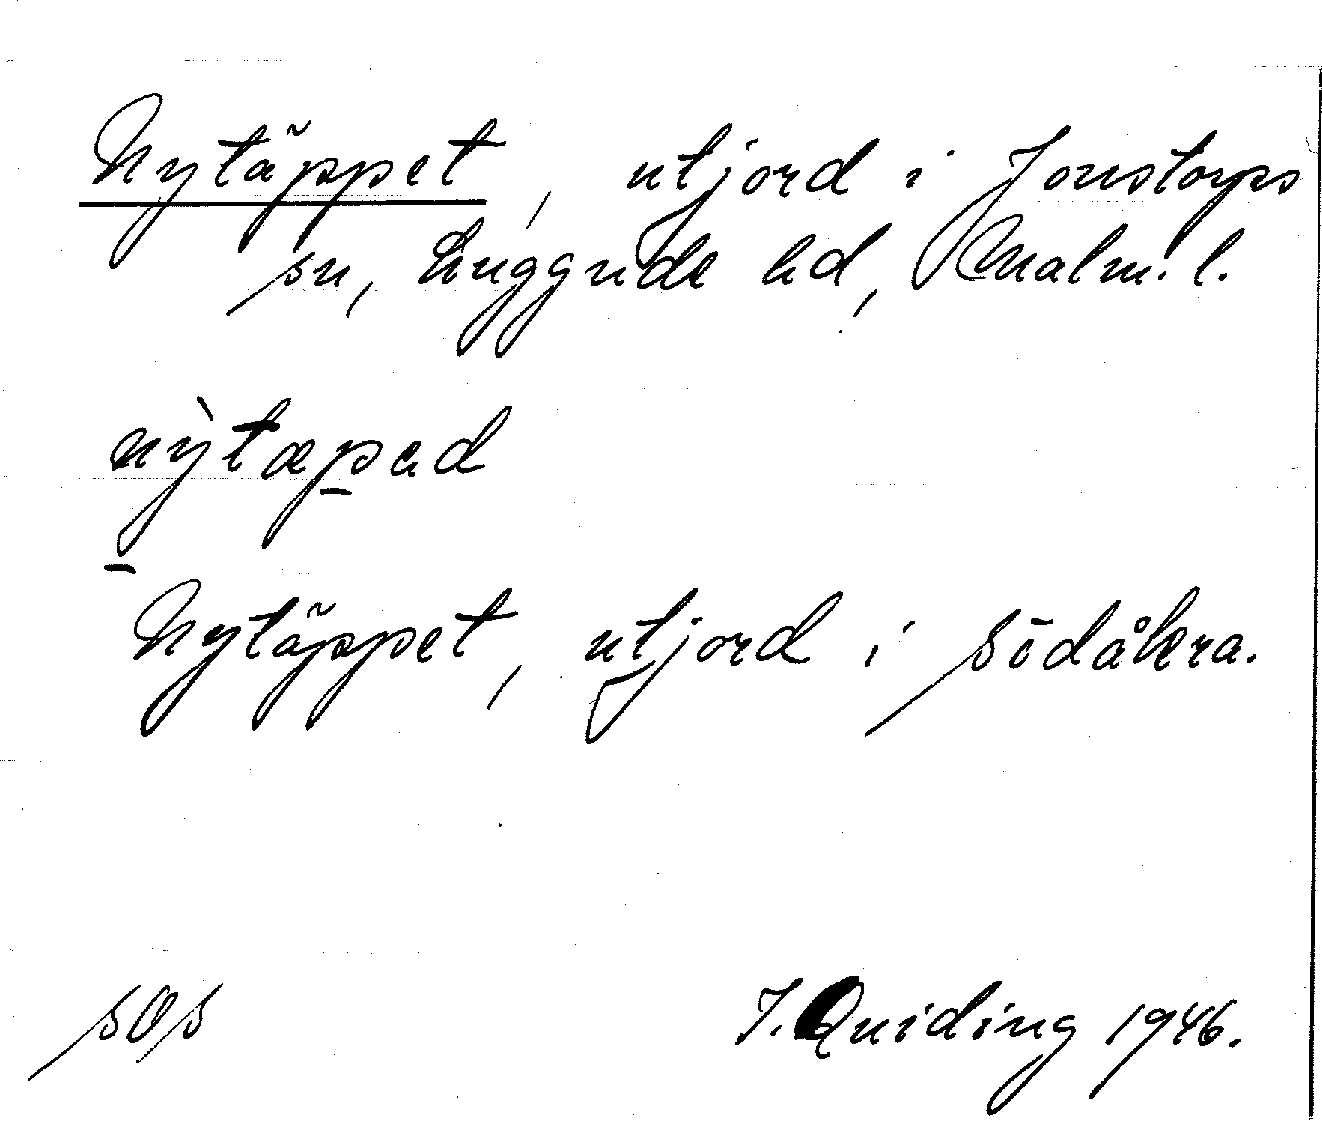 Nytäppet, utjord i Jonstorps
sn, Luggude hd, Malm. l.
nỳtæpad
Nytäppet, utjord i Södåkra.
sOs
J. Quiding 1946.